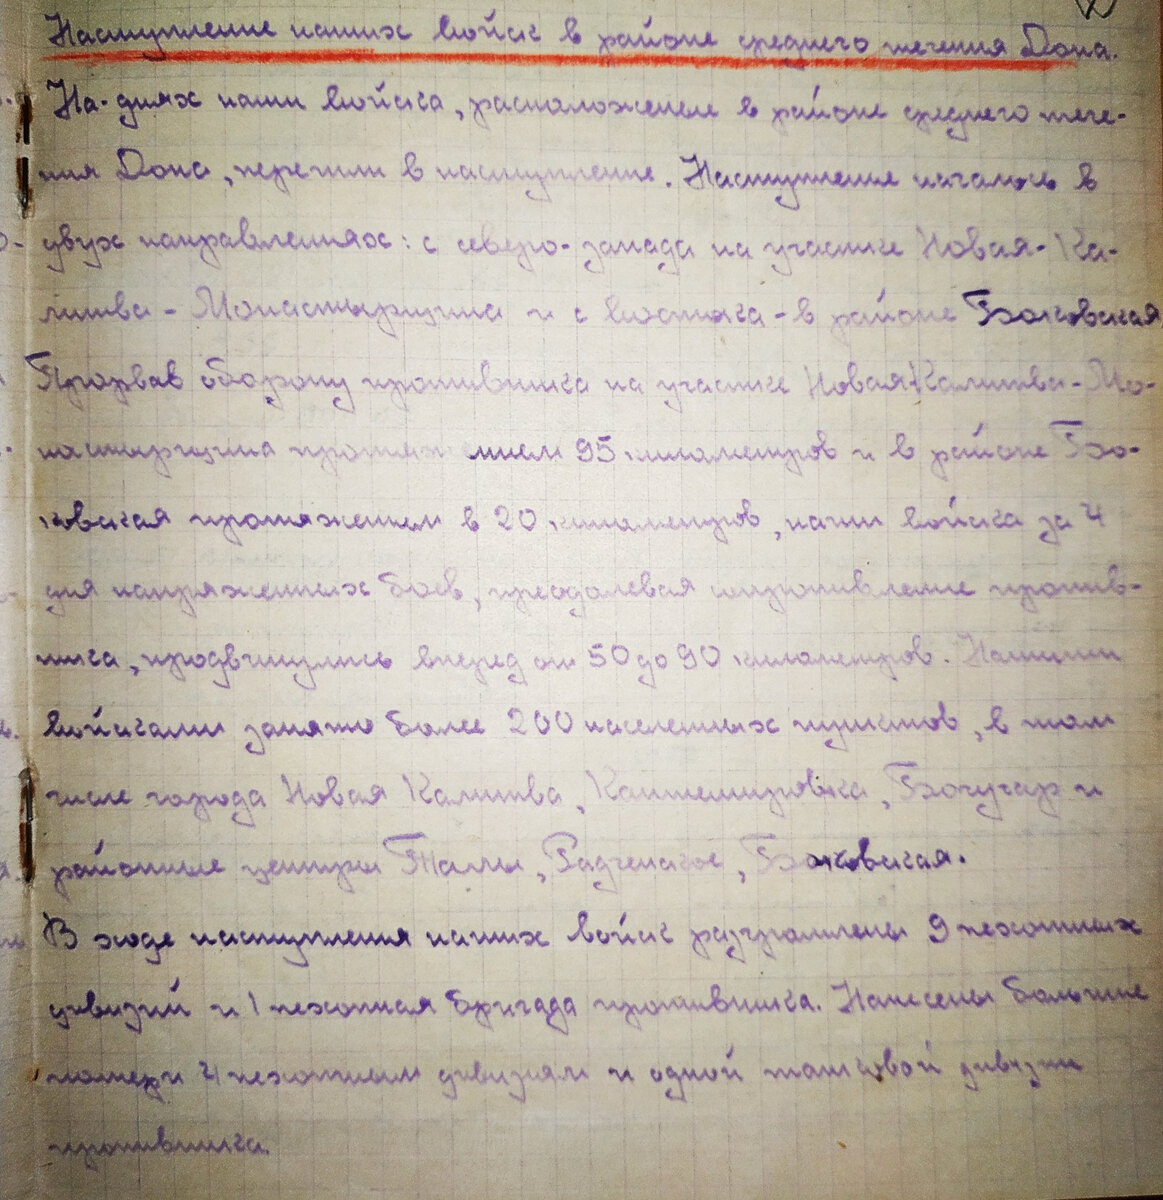 Наступление наших войск в районе среднего течения Дона.
На-днях наши войска, расположеные в районе среднего тече-
ния Дона, перешли в наступление. Наступление началось в
двух направлениях: с северо-запада на участке Новая-Ка-
литва - Монастырщина и с востока - в районе Боковская
Прорвав оборону противника на участке Новая Калитва - Мо-
настырщина протяжением 95 километров и в районе Бо-
ковская протяжением в 20 километров, наши войска за 4
дня напряженных боев, преодолевая сопротивление против-
ника, продвинулись вперед от 50 до 90 километров. Нашими
войсками занято более 200 населенных пунктов, в том
числе города Новая Калитва, Кантемировка, Богучар и
районные центры Талы, Радченское, Боковская.
В ходе наступления наших войск разгромлены 9 пехотных
дивизий и 1 пехотная бригада противника. Нанесены большие
потери 4 пехотным дивизиям и одной танковой дивизии
противника.